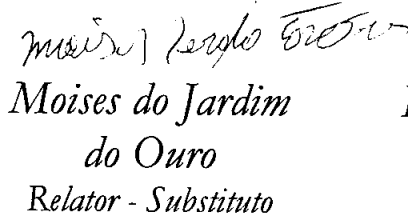 Moises do Jardim
do Ouro
Relator - Substituto